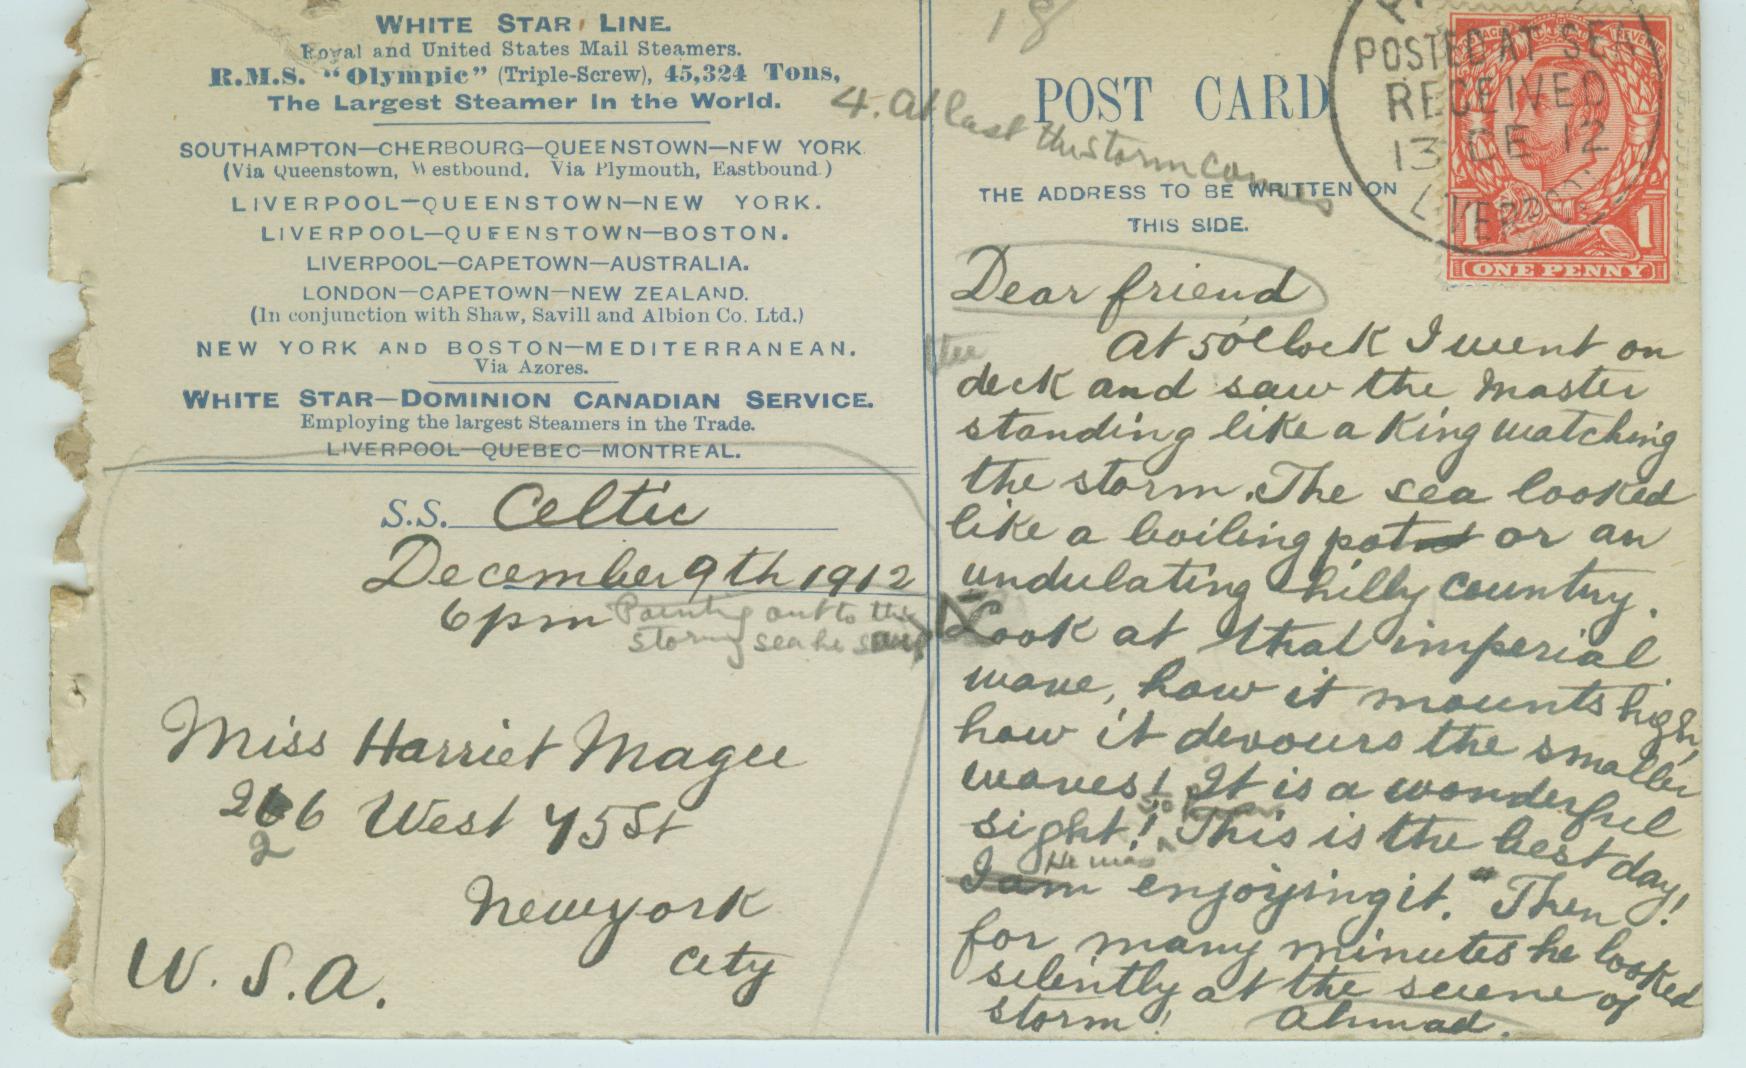 WHITE STAR LINE.
Royal and United States Mail Steamers.
R.M.S. "Olympic" (Triple-Screw), 45,324 Tons,
The Largest Steamer in the World.
SOUTHAMPTON—CHERBOURG—QUEENSTOWN—NEW YORK
(Via Queenstown, Westbound, Via Plymouth, Eastbound.)
LIVERPOOL—QUEENSTOWN—NEW YORK.
LIVERPOOL—QUEENSTOWN—BOSTON.
LIVERPOOL—CAPETOWN—AUSTRALIA.
LONDON—CAPETOWN—NEW ZEALAND.
(In conjunction with Shaw, Savill and Albion Co. Ltd.)
NEW YORK AND BOSTON—MEDITERRANEAN.
Via Azores.
WHITE STAR—DOMINION CANADIAN SERVICE.
Employing the largest Steamers in the Trade.
LIVERPOOL—QUEBEC—MONTREAL.
S.S. Celtic
December 9th 1912
6 pm
Pointing out to the
stormy sea he says
Miss Harriet Magee
266 West 45 St
2
New york
City
U. S. A.
18
POST CARD
4. At last the storm comes
THE ADDRESS TO BE WRITTEN ON
THIS SIDE.
POSTED AT SEA
RECEIVED
13 DE 12
LIVERPOOL
POSTAGE REVENUE
1 1
ONE PENNY
Dear friend
At 5 o'clock I went on
deck and saw the Master
standing like a King watching
the storm. The sea looked
like a boiling pot or an
undulating hilly country.
Look at that imperial
wave, how it mounts high,
how it devours the smaller
waves! It is a wonderful
sight! This is the best day!
He was
I am enjoying it." Then
for many minutes he looked
silently at the scene of
storm! Ahmad.